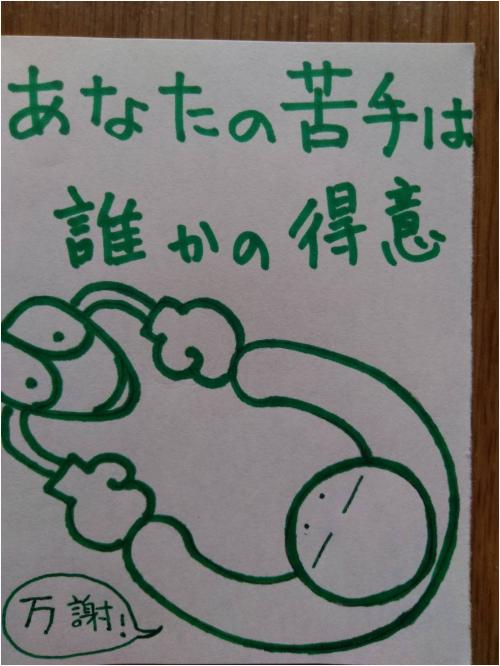 あなたの苦手は
誰かの得意
万謝!